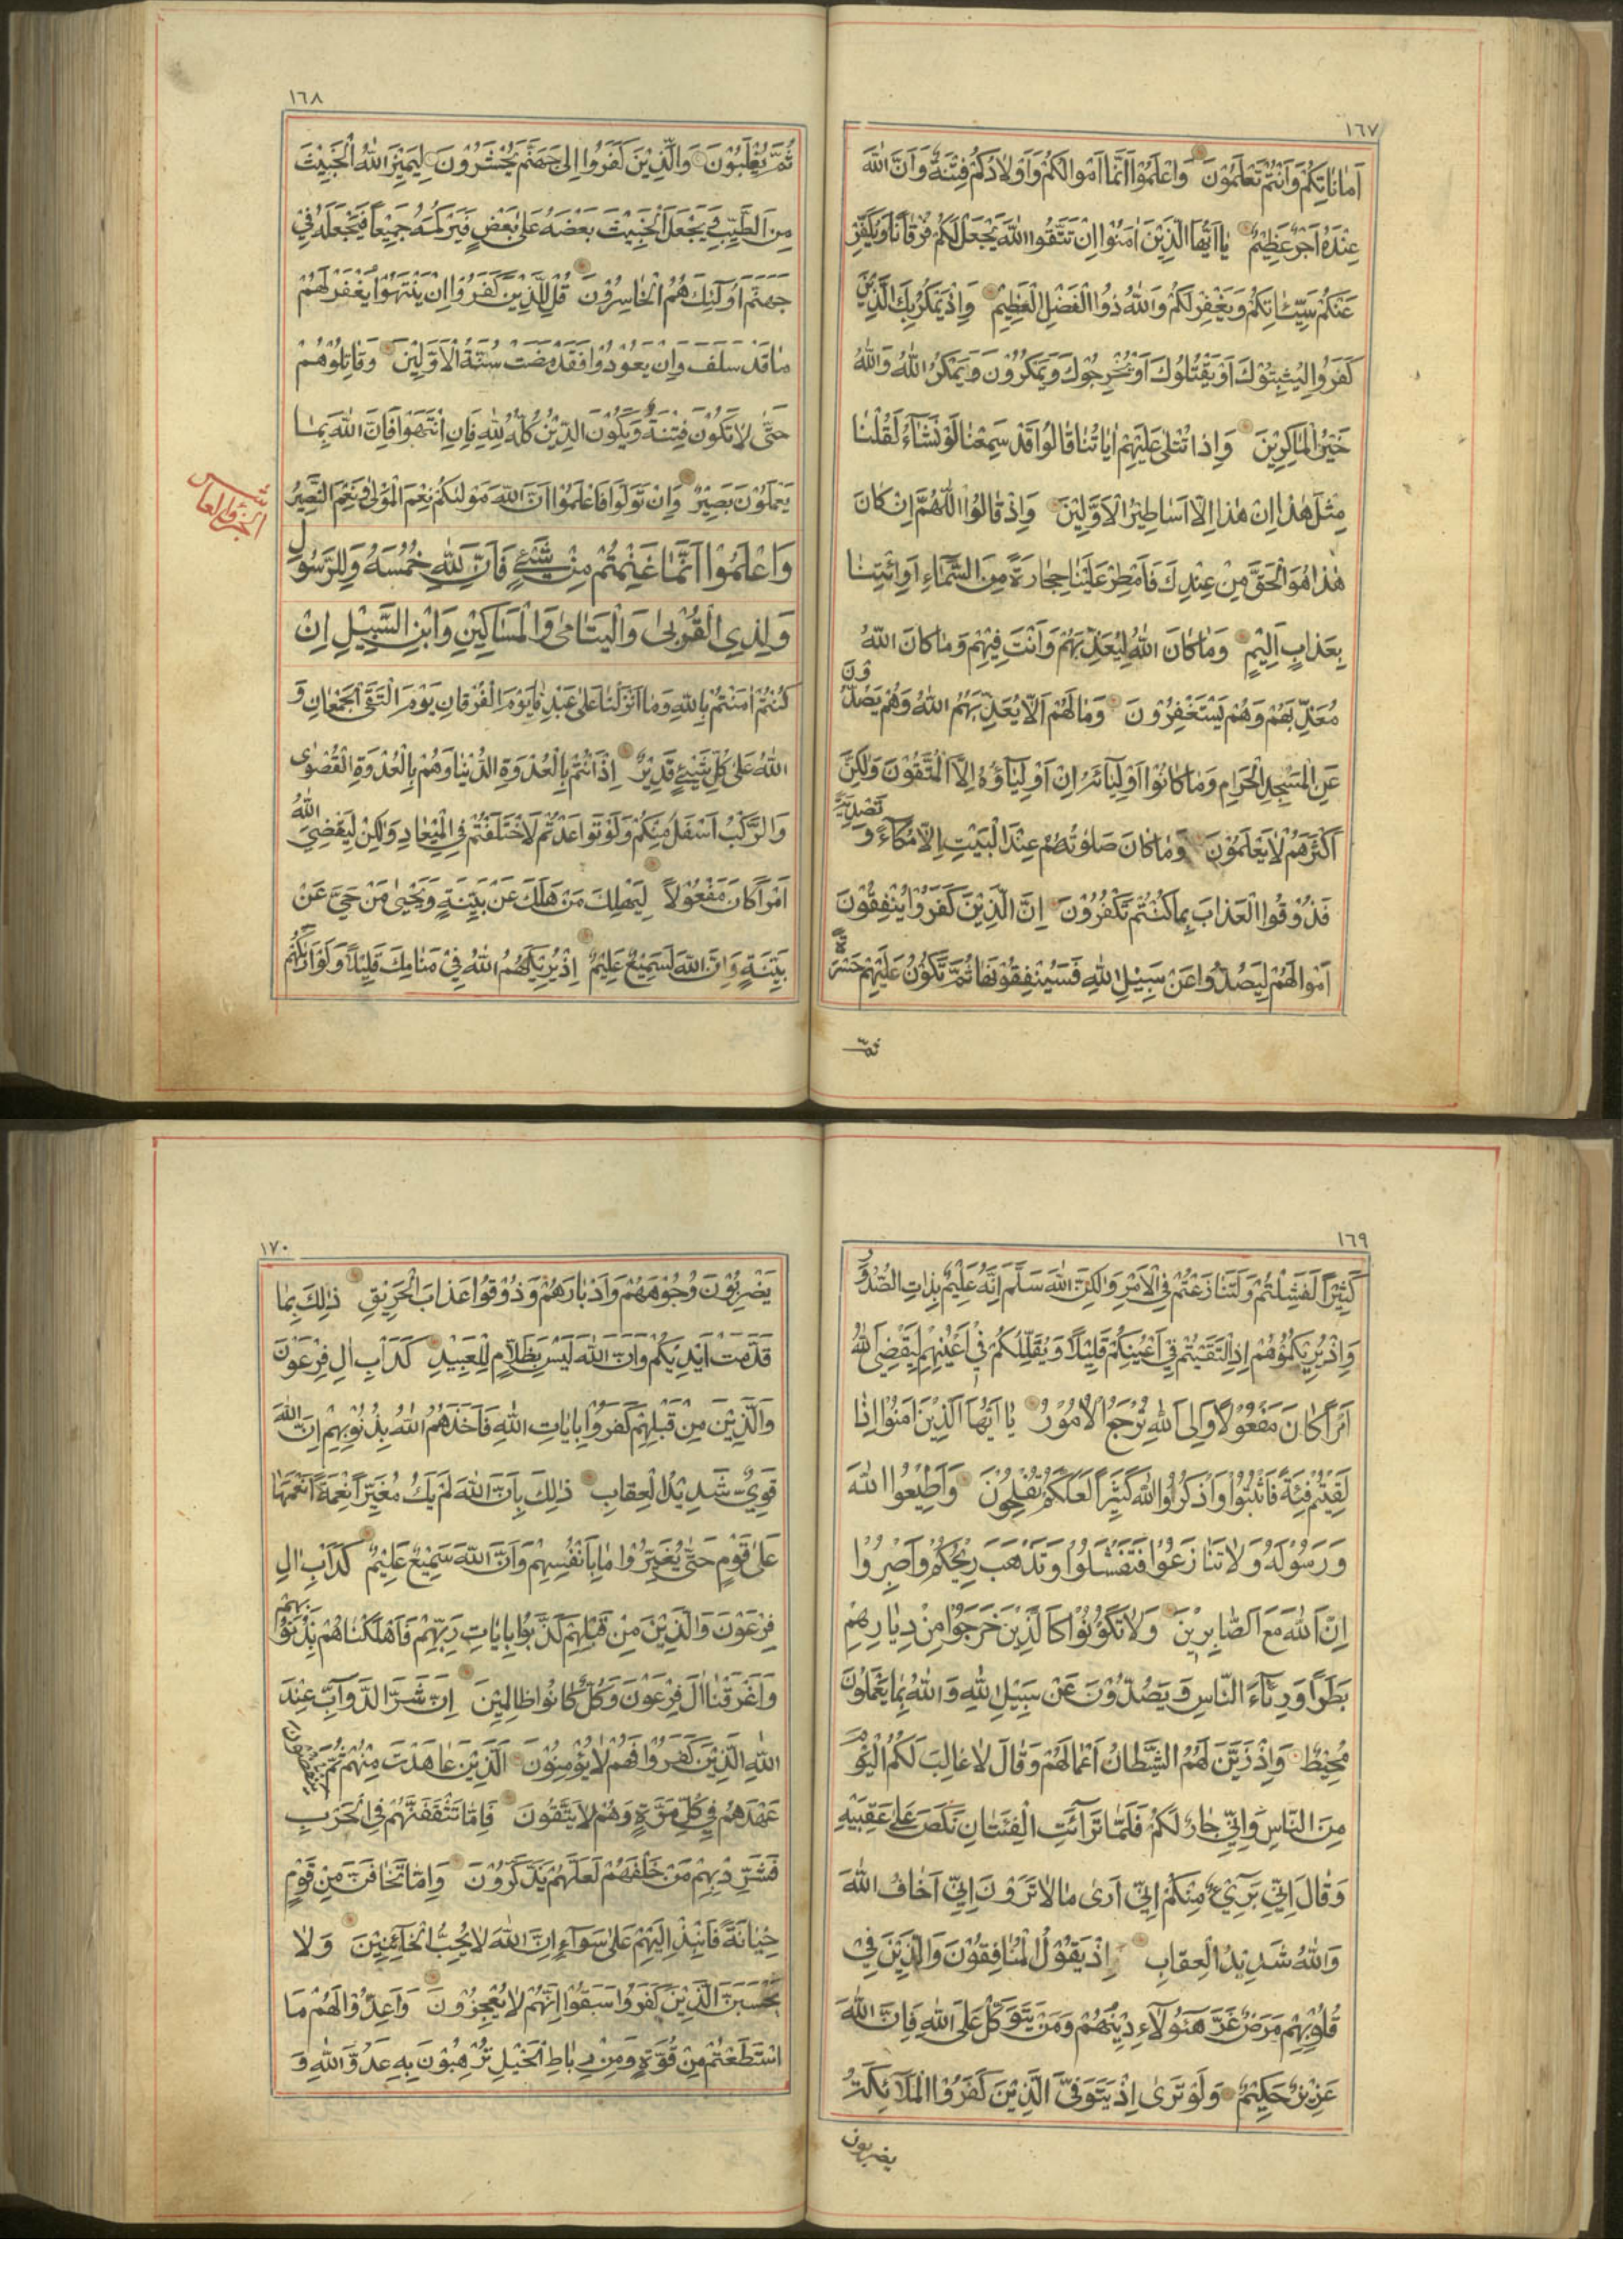 ١٦٧
اَمَانَاتِكُمْ وَاَنْتُمْ تَعْلَمُوْنَ وَاعْلَمُوْا اَنَّمَا اَمْوَالُكُمْ وَاَوْلَادُكُمْ فِتْنَةٌ وَاَنَّ اللّٰهَ
عِنْدَهُ اَجْرٌ عَظِيْمٌ يَا اَيُّهَا الَّذِيْنَ اٰمَنُوْا اِنْ تَتَّقُوا اللّٰهَ يَجْعَلْ لَكُمْ فُرْقَانًا وَيُكَفِّرْ
عَنْكُمْ سَيِّئَاتِكُمْ وَيَغْفِرْ لَكُمْ وَاللّٰهُ ذُوا الْفَضْلِ الْعَظِيْمِ وَاِذْ يَمْكُرُ بِكَ الَّذِيْنَ
كَفَرُوْا لِيُثْبِتُوْكَ اَوْ يَقْتُلُوْكَ اَوْ يُخْرِجُوْكَ وَيَمْكُرُوْنَ وَيَمْكُرُ اللّٰهُ وَاللّٰهُ
خَيْرُ الْمَاكِرِيْنَ وَاِذَا تُتْلٰى عَلَيْهِمْ اٰيَاتُنَا قَالُوْا قَدْ سَمِعْنَا لَوْ نَشَاءُ لَقُلْنَا
مِثْلَ هٰذَا اِنْ هٰذَا اِلَّا اَسَاطِيْرُ الْاَوَّلِيْنَ وَاِذْ قَالُوا اللّٰهُمَّ اِنْ كَانَ
هٰذَا هُوَ الْحَقَّ مِنْ عِنْدِكَ فَاَمْطِرْ عَلَيْنَا حِجَارَةً مِنَ السَّمَاءِ اَوِ ائْتِنَا
بِعَذَابٍ اَلِيْمٍ وَمَا كَانَ اللّٰهُ لِيُعَذِّبَهُمْ وَاَنْتَ فِيْهِمْ وَمَا كَانَ اللّٰهُ
مُعَذِّبَهُمْ وَهُمْ يَسْتَغْفِرُوْنَ وَمَا لَهُمْ اَلَّا يُعَذِّبَهُمُ اللّٰهُ وَهُمْ يَصُدُّوْنَ
عَنِ الْمَسْجِدِ الْحَرَامِ وَمَا كَانُوْا اَوْلِيَآئَهُ اِنْ اَوْلِيَآؤُهُ اِلَّا الْمُتَّقُوْنَ وَلٰكِنَّ
اَكْثَرَهُمْ لَا يَعْلَمُوْنَ وَمَا كَانَ صَلٰوتُهُمْ عِنْدَ الْبَيْتِ اِلَّا مُكَآءً وَتَصْدِيَةً
فَذُوْقُوا الْعَذَابَ بِمَا كُنْتُمْ تَكْفُرُوْنَ اِنَّ الَّذِيْنَ كَفَرُوْا يُنْفِقُوْنَ
اَمْوَالَهُمْ لِيَصُدُّوْا عَنْ سَبِيْلِ اللّٰهِ فَسَيُنْفِقُوْنَهَا ثُمَّ تَكُوْنُ عَلَيْهِمْ حَسْرَةً
ثمّ
١٦٨
ثُمَّ يُغْلَبُوْنَ وَالَّذِيْنَ كَفَرُوْا اِلٰى جَهَنَّمَ يُحْشَرُوْنَ لِيَمِيْزَ اللّٰهُ الْخَبِيْثَ
مِنَ الطَّيِّبِ وَيَجْعَلَ الْخَبِيْثَ بَعْضَهُ عَلٰى بَعْضٍ فَيَرْكُمَهُ جَمِيْعًا فَيَجْعَلَهُ فِيْ
جَهَنَّمَ اُولٰئِكَ هُمُ الْخَاسِرُوْنَ قُلْ لِلَّذِيْنَ كَفَرُوْا اِنْ يَنْتَهُوْا يُغْفَرْ لَهُمْ
مَا قَدْ سَلَفَ وَاِنْ يَعُوْدُوْا فَقَدْ مَضَتْ سُنَّةُ الْاَوَّلِيْنَ وَقَاتِلُوْهُمْ
حَتّٰى لَا تَكُوْنَ فِتْنَةٌ وَيَكُوْنَ الدِّيْنُ كُلُّهُ لِلّٰهِ فَاِنِ انْتَهَوْا فَاِنَّ اللّٰهَ بِمَا
يَعْمَلُوْنَ بَصِيْرٌ وَاِنْ تَوَلَّوْا فَاعْلَمُوْا اَنَّ اللّٰهَ مَوْلٰىكُمْ نِعْمَ الْمَوْلٰى وَنِعْمَ النَّصِيْرُ
الجزو العاشر
وَاعْلَمُوْا اَنَّمَا غَنِمْتُمْ مِنْ شَيْءٍ فَاَنَّ لِلّٰهِ خُمُسَهُ وَلِلرَّسُوْلِ
وَلِذِي الْقُرْبٰى وَالْيَتَامٰى وَالْمَسَاكِيْنِ وَابْنِ السَّبِيْلِ اِنْ
كُنْتُمْ اٰمَنْتُمْ بِاللّٰهِ وَمَا اَنْزَلْنَا عَلٰى عَبْدِنَا يَوْمَ الْفُرْقَانِ يَوْمَ الْتَقَى الْجَمْعَانِ وَ
اللّٰهُ عَلٰى كُلِّ شَيْءٍ قَدِيْرٌ اِذْ اَنْتُمْ بِالْعُدْوَةِ الدُّنْيَا وَهُمْ بِالْعُدْوَةِ الْقُصْوٰى
وَالرَّكْبُ اَسْفَلَ مِنْكُمْ وَلَوْ تَوَاعَدْتُمْ لَاخْتَلَفْتُمْ فِي الْمِيْعَادِ وَلٰكِنْ لِيَقْضِيَ اللّٰهُ
اَمْرًا كَانَ مَفْعُوْلًا لِيَهْلِكَ مَنْ هَلَكَ عَنْ بَيِّنَةٍ وَيَحْيٰى مَنْ حَيَّ عَنْ
بَيِّنَةٍ وَاِنَّ اللّٰهَ لَسَمِيْعٌ عَلِيْمٌ اِذْ يُرِيْكَهُمُ اللّٰهُ فِيْ مَنَامِكَ قَلِيْلًا وَلَوْ اَرٰىكَهُمْ
١٦٩
كَثِيْرًا لَفَشِلْتُمْ وَلَتَنَازَعْتُمْ فِي الْاَمْرِ وَلٰكِنَّ اللّٰهَ سَلَّمَ اِنَّهُ عَلِيْمٌ بِذَاتِ الصُّدُوْرِ
وَاِذْ يُرِيْكُمُوْهُمْ اِذِ الْتَقَيْتُمْ فِيْ اَعْيُنِكُمْ قَلِيْلًا وَيُقَلِّلُكُمْ فِيْ اَعْيُنِهِمْ لِيَقْضِيَ اللّٰهُ
اَمْرًا كَانَ مَفْعُوْلًا وَاِلَى اللّٰهِ تُرْجَعُ الْاُمُوْرُ يَا اَيُّهَا الَّذِيْنَ اٰمَنُوْا اِذَا
لَقِيْتُمْ فِئَةً فَاثْبُتُوْا وَاذْكُرُوا اللّٰهَ كَثِيْرًا لَعَلَّكُمْ تُفْلِحُوْنَ وَاَطِيْعُوا اللّٰهَ
وَرَسُوْلَهُ وَلَا تَنَازَعُوْا فَتَفْشَلُوْا وَتَذْهَبَ رِيْحُكُمْ وَاصْبِرُوْا
اِنَّ اللّٰهَ مَعَ الصَّابِرِيْنَ وَلَا تَكُوْنُوْا كَالَّذِيْنَ خَرَجُوْا مِنْ دِيَارِهِمْ
بَطَرًا وَرِئَآءَ النَّاسِ وَيَصُدُّوْنَ عَنْ سَبِيْلِ اللّٰهِ وَاللّٰهُ بِمَا يَعْمَلُوْنَ
مُحِيْطٌ وَاِذْ زَيَّنَ لَهُمُ الشَّيْطَانُ اَعْمَالَهُمْ وَقَالَ لَا غَالِبَ لَكُمُ الْيَوْمَ
مِنَ النَّاسِ وَاِنِّيْ جَارٌ لَكُمْ فَلَمَّا تَرَآئَتِ الْفِئَتَانِ نَكَصَ عَلٰى عَقِبَيْهِ
وَقَالَ اِنِّيْ بَرِيْءٌ مِنْكُمْ اِنِّيْ اَرٰى مَا لَا تَرَوْنَ اِنِّيْ اَخَافُ اللّٰهَ
وَاللّٰهُ شَدِيْدُ الْعِقَابِ اِذْ يَقُوْلُ الْمُنَافِقُوْنَ وَالَّذِيْنَ فِيْ
قُلُوْبِهِمْ مَرَضٌ غَرَّ هٰؤُلَآءِ دِيْنُهُمْ وَمَنْ يَتَوَكَّلْ عَلَى اللّٰهِ فَاِنَّ اللّٰهَ
عَزِيْزٌ حَكِيْمٌ وَلَوْ تَرٰى اِذْ يَتَوَفَّى الَّذِيْنَ كَفَرُوا الْمَلَآئِكَةُ
يضربون
١٧٠
يَضْرِبُوْنَ وُجُوْهَهُمْ وَاَدْبَارَهُمْ وَذُوْقُوْا عَذَابَ الْحَرِيْقِ ذٰلِكَ بِمَا
قَدَّمَتْ اَيْدِيْكُمْ وَاَنَّ اللّٰهَ لَيْسَ بِظَلَّامٍ لِلْعَبِيْدِ كَدَاْبِ اٰلِ فِرْعَوْنَ
وَالَّذِيْنَ مِنْ قَبْلِهِمْ كَفَرُوْا بِاٰيَاتِ اللّٰهِ فَاَخَذَهُمُ اللّٰهُ بِذُنُوْبِهِمْ اِنَّ اللّٰهَ
قَوِيٌّ شَدِيْدُ الْعِقَابِ ذٰلِكَ بِاَنَّ اللّٰهَ لَمْ يَكُ مُغَيِّرًا نِعْمَةً اَنْعَمَهَا
عَلٰى قَوْمٍ حَتّٰى يُغَيِّرُوْا مَا بِاَنْفُسِهِمْ وَاَنَّ اللّٰهَ سَمِيْعٌ عَلِيْمٌ كَدَاْبِ اٰلِ
فِرْعَوْنَ وَالَّذِيْنَ مِنْ قَبْلِهِمْ كَذَّبُوْا بِاٰيَاتِ رَبِّهِمْ فَاَهْلَكْنَاهُمْ بِذُنُوْبِهِمْ
وَاَغْرَقْنَا اٰلَ فِرْعَوْنَ وَكُلٌّ كَانُوْا ظَالِمِيْنَ اِنَّ شَرَّ الدَّوَآبِّ عِنْدَ
اللّٰهِ الَّذِيْنَ كَفَرُوْا فَهُمْ لَا يُؤْمِنُوْنَ الَّذِيْنَ عَاهَدْتَ مِنْهُمْ ثُمَّ يَنْقُضُوْنَ
عَهْدَهُمْ فِيْ كُلِّ مَرَّةٍ وَهُمْ لَا يَتَّقُوْنَ فَاِمَّا تَثْقَفَنَّهُمْ فِي الْحَرْبِ
فَشَرِّدْ بِهِمْ مَنْ خَلْفَهُمْ لَعَلَّهُمْ يَذَّكَّرُوْنَ وَاِمَّا تَخَافَنَّ مِنْ قَوْمٍ
خِيَانَةً فَانْبِذْ اِلَيْهِمْ عَلٰى سَوَآءٍ اِنَّ اللّٰهَ لَا يُحِبُّ الْخَآئِنِيْنَ وَلَا
يَحْسَبَنَّ الَّذِيْنَ كَفَرُوْا سَبَقُوْا اِنَّهُمْ لَا يُعْجِزُوْنَ وَاَعِدُّوْا لَهُمْ مَا
اسْتَطَعْتُمْ مِنْ قُوَّةٍ وَمِنْ رِبَاطِ الْخَيْلِ تُرْهِبُوْنَ بِهِ عَدُوَّ اللّٰهِ وَ